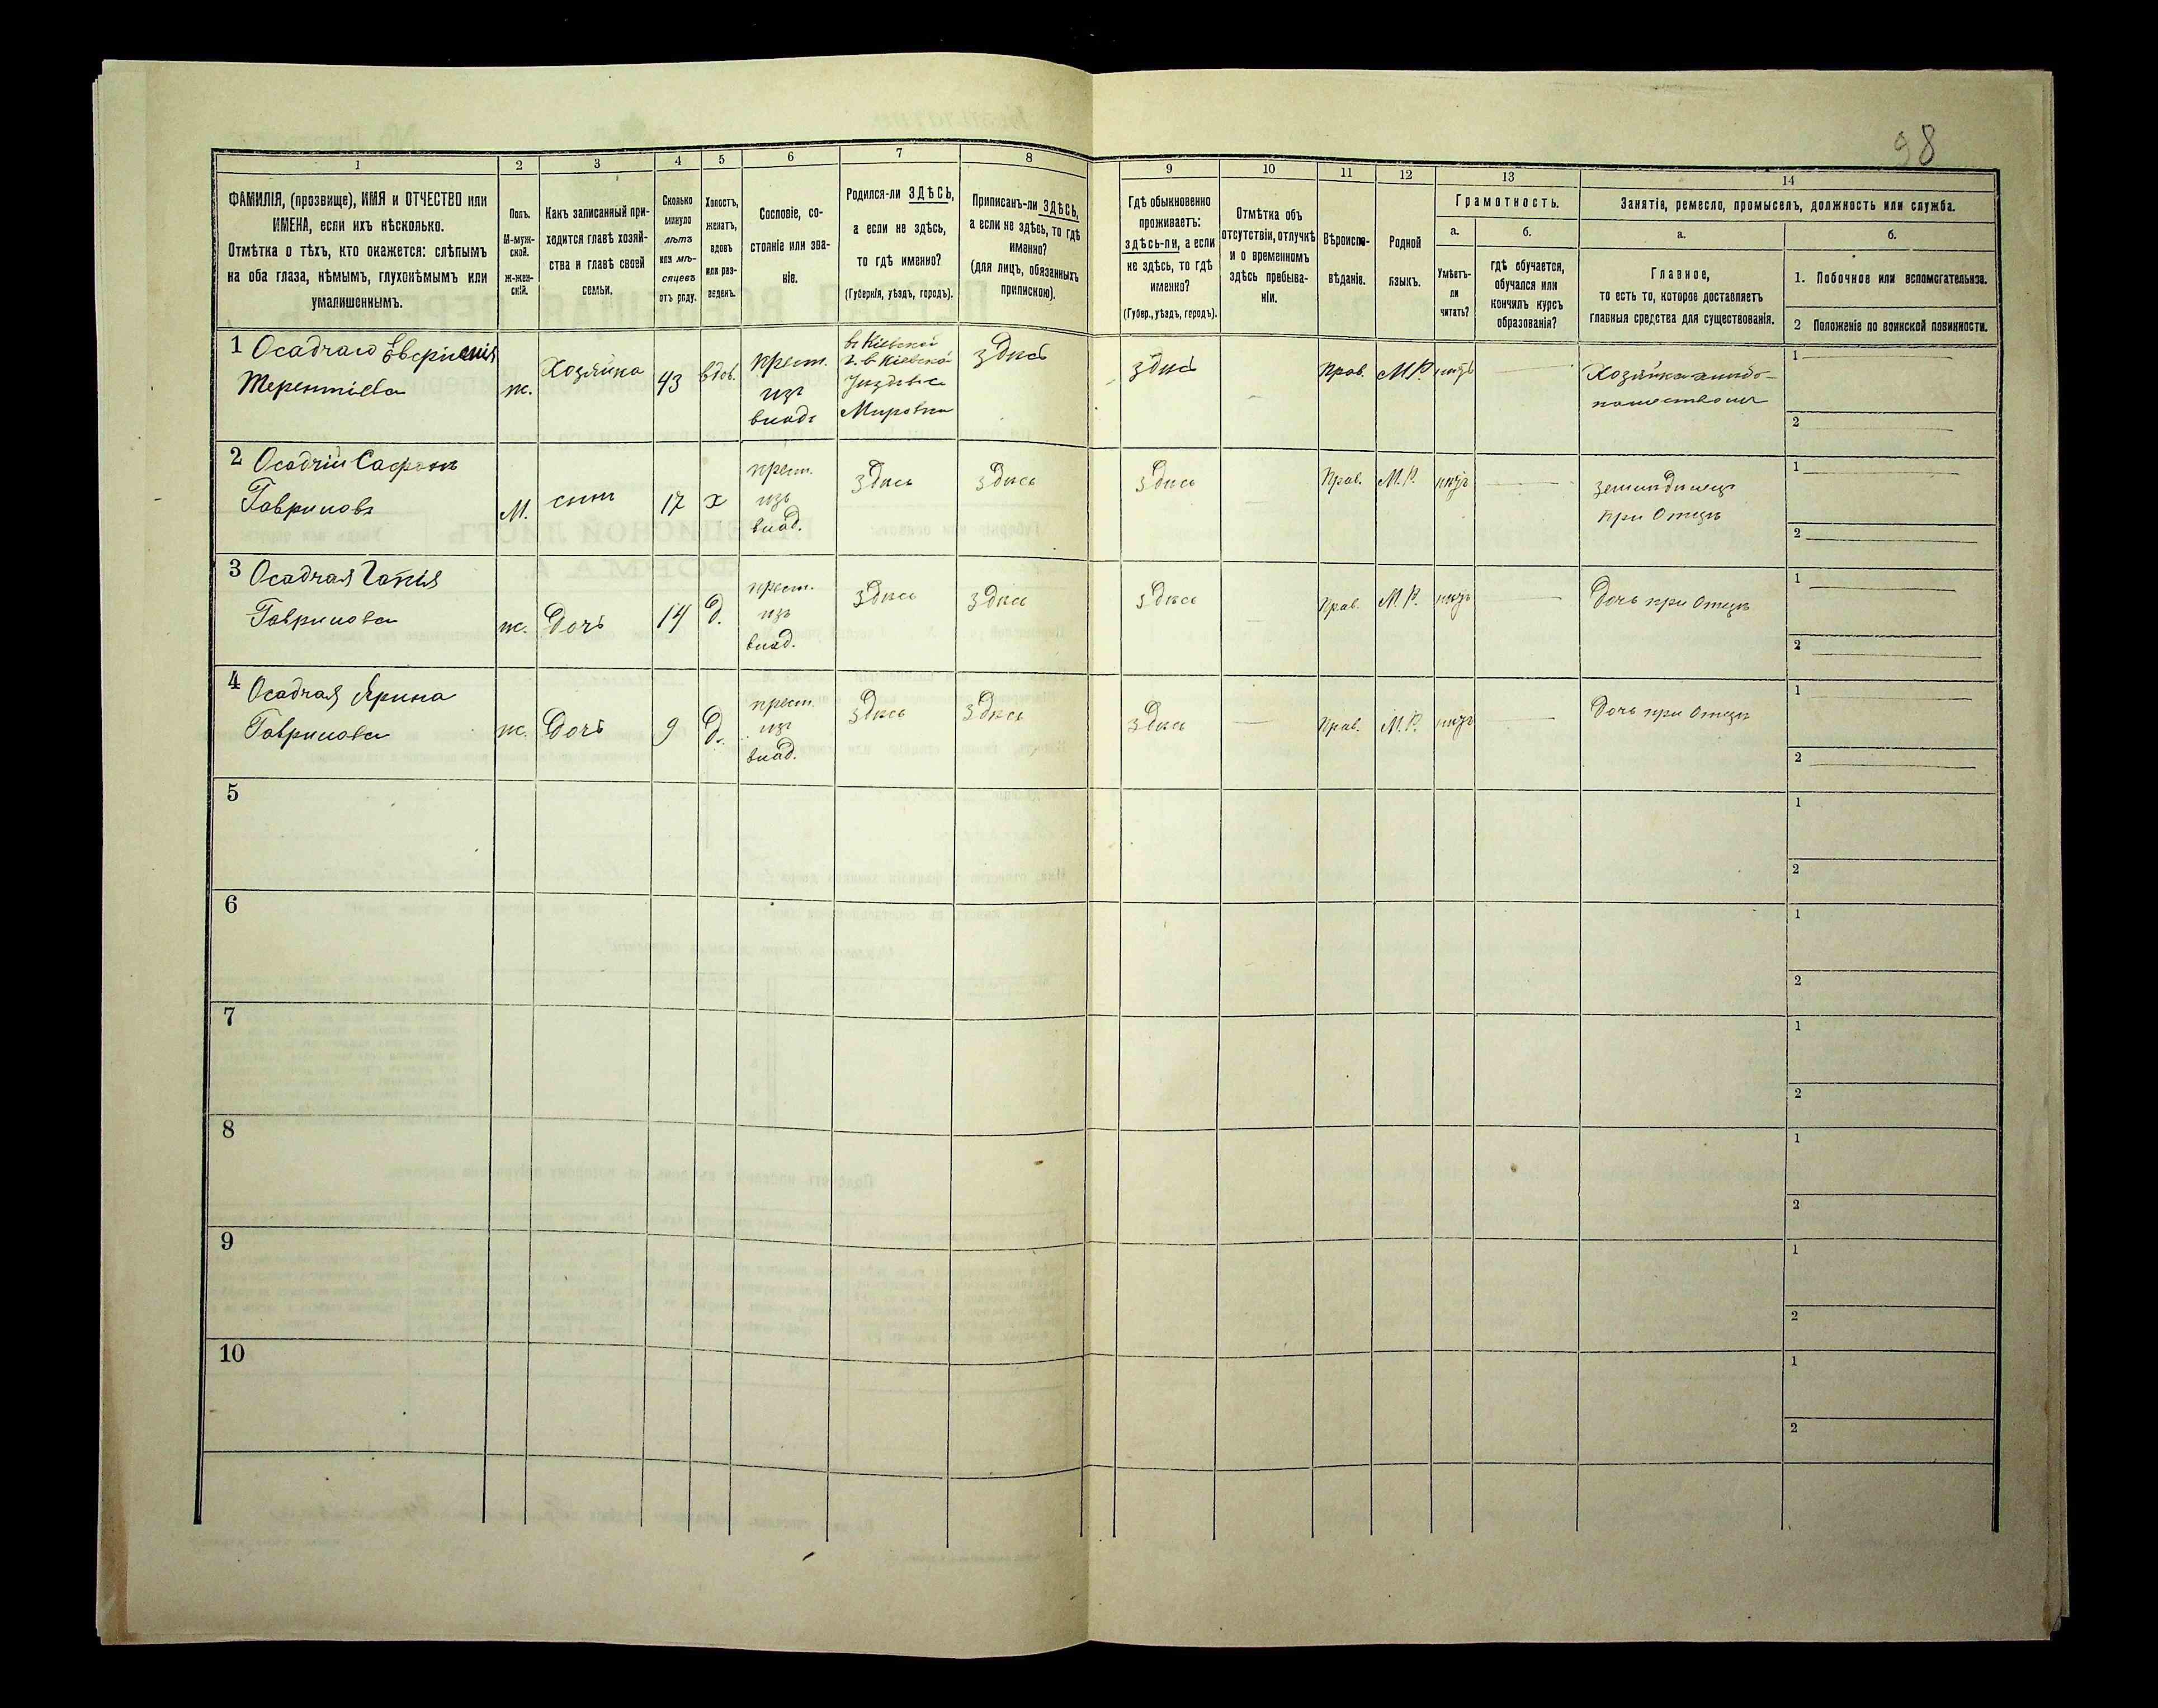 98
1 2 3 4 5 6 7 8 9 10 11 12 13 14
ФАМИЛІЯ, (прозвище), ИМЯ и ОТЧЕСТВО или
ИМЕНА, если ихъ нѣсколько.
Отмѣтка о тѣхъ, кто окажется: слѣпымъ
на оба глаза, нѣмымъ, глухонѣмымъ или
умалишеннымъ.
Полъ.
М-муж-
ской.
Ж-жен-
скій.
Какъ записанный при-
ходится главѣ хозяй-
ства и главѣ своей
семьи.
Сколько
минуло
лѣтъ
или мѣ-
сяцевъ
отъ роду.
Холостъ,
женатъ,
вдовъ
или раз-
веденъ.
Сословіе, со-
стояніе или зва-
ніе.
Родился-ли ЗДѢСЬ,
а если не здѣсь,
то гдѣ именно?
(Губернія, уѣздъ, городъ).
Приписанъ-ли ЗДѢСЬ,
а если не здѣсь, то гдѣ
именно?
(для лицъ, обязанныхъ
припискою).
Гдѣ обыкновенно
проживаетъ:
здѣсь-ли, а если
не здѣсь, то гдѣ
именно?
(Губер., уѣздъ, городъ).
Отмѣтка объ
отсутствіи, отлучкѣ
и о временномъ
здѣсь пребыва-
ніи.
Вѣроиспо-
вѣданіе.
Родной
языкъ.
Грамотность.
а.
Умѣетъ-
ли
читать?
б.
гдѣ обучается,
обучался или
кончилъ курсъ
образованія?
Занятія, ремесло, промыселъ, должность или служба.
а.
Главное,
то есть то, которое доставляетъ
главныя средства для существованія.
б.
1. Побочное или вспомогательное.
2 Положеніе по воинской повинности.
1 Осадчаго
Терентіева
ж.
Хозяйка
43
вдов.
крест.
изъ
влад.
в Кіевской
г. в Кіевском
Уѣздѣ в с
Мировка
здѣсь
здѣсь
Прав.
М.Р.
нѣтъ
Хозяйка
1
2
2 Осадчій Сафронъ
Гавриловъ
М.
сынъ
17
х
крест.
изъ
влад.
здѣсь
здѣсь
здѣсь
Прав.
М.Р.
нѣтъ
земледѣлецъ
при Отцѣ
1
2
3 Осадчая Гапія
Гаврилова
ж.
Дочь
14
д.
крест.
изъ
влад.
здѣсь
здѣсь
здѣсь
Прав.
М.Р.
нѣтъ
Дочь при Отцѣ
1
2
4 Осадчая Ярина
Гаврилова
ж.
Дочь
9
д.
крест.
изъ
влад.
здѣсь
здѣсь
здѣсь
Прав.
М.Р.
нѣтъ
Дочь при Отцѣ
1
2
5
1
2
6
1
2
7
1
2
8
1
2
9
1
2
10
1
2